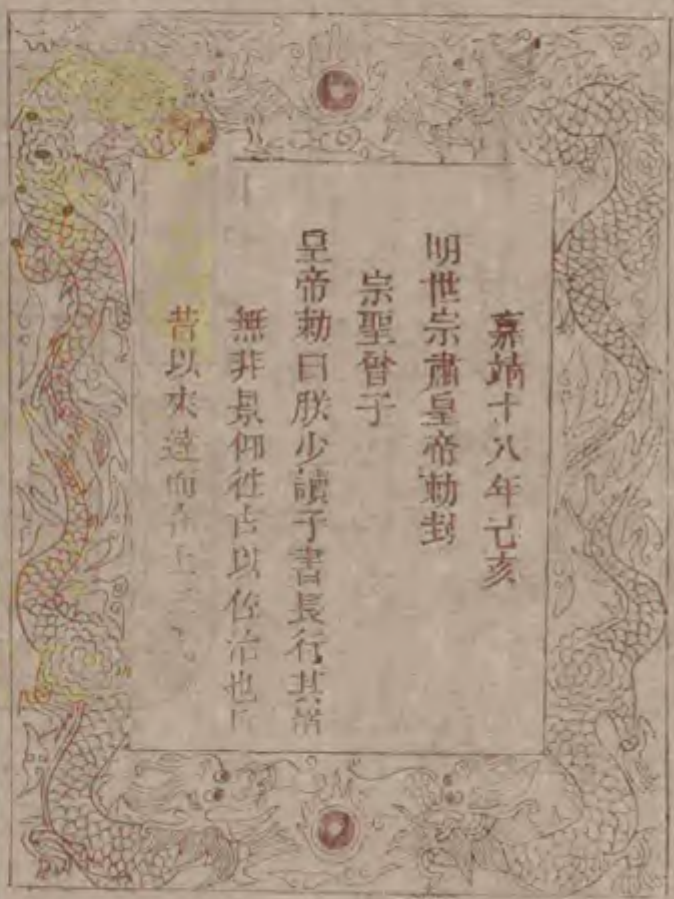 嘉靖十八年己亥
明世宗肅皇帝勅封
宗聖曾子
皇帝勅曰朕少讀予書長行其
無非景仰徃古以佐治也
昔以來達而在上